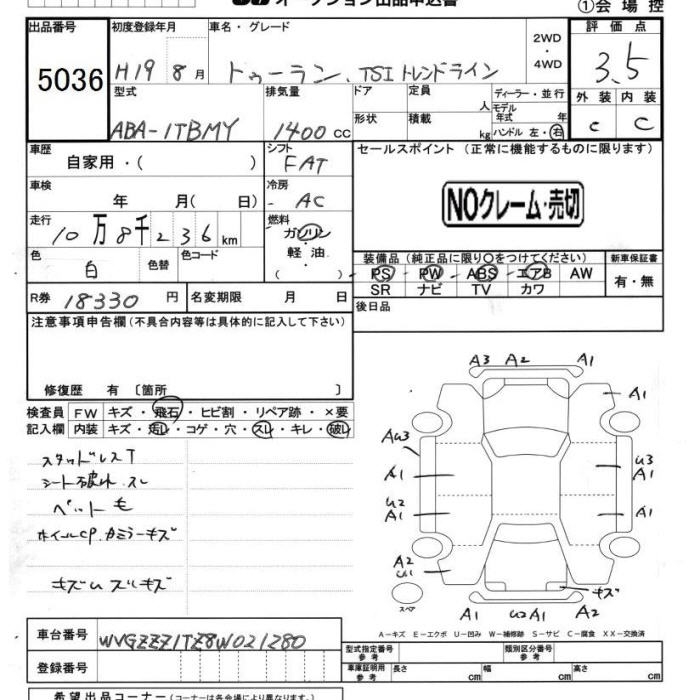 ①会場控
出品番号 初度登録年月 車名・グレード 2WD・4WD 評価点
5036 H19 8月 トゥーラン、TSIトレンドライン 3.5
型式 排気量 ドア 定員 人 ディーラー・並行 外装 内装
ABA-1TBMY 1400cc 形状 積載 kg モデル年式 年 ハンドル 左・右 C C
車歴 シフト セールスポイント(正常に機能するものに限ります)
自家用・( ) FAT
車検 冷房 NOクレーム・売切
年 月( 日) AC
走行 燃料
10万8千236km ガソリン
色 色替 色コード 軽油
白 ( )
装備品(純正品に限り○をつけてください) 新車保証書
PS PW ABS エアB AW 有・無
SR ナビ TV カワ
R券 18330円 名変期限 月 日 後日品
注意事項申告欄(不具合内容等は具体的に記入して下さい)
修復歴 有 〔箇所 〕
検査員 FW キズ・飛石・ヒビ割・リペア跡・×要
記入欄 内装 キズ・汚レ・コゲ・穴・スレ・キレ・破レ
スタッドレスT
シート破れ、スレ
ペット毛
ホイールCP.カミラーキズ
A3 A2 A1
A1
AU3
A1
U3
A1
U2
A1
A1
A2
キズ
スペア
A1 U2A1 A2
A-キズ E-エクボ U-凹み W-補修跡 S-サビ C-腐食 XX-交換済
車台番号 WVGZZZ1TZ8W021280
登録番号
型式指定番号 類別区分番号
車庫証明用参考 長さ cm 幅 cm 高さ cm
希望出品コーナー(コーナーは各会場により異なります。)